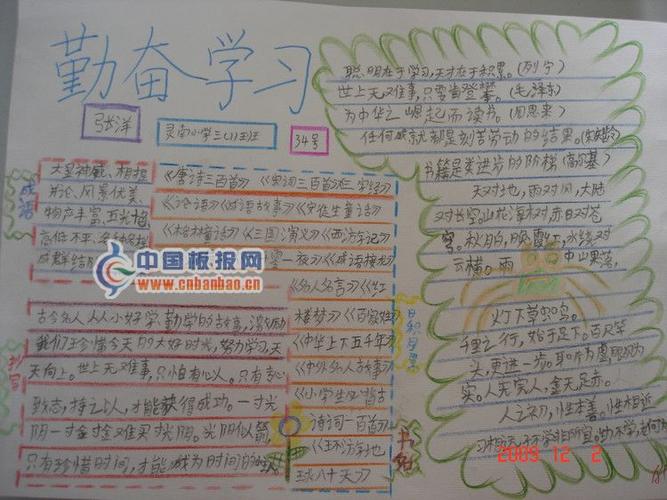 勤奋学习
张洋
灵南小学三(1)班
34号
成语
大显神威、相提
并论、风景优美、
物产丰富、五光十
高低不平、各种各样
成群结队
《唐诗三百首》《宋词三百首》《三字经》
《论语》《成语故事》《安徒生童话》
《格林童话》《三国演义》《西游记》
一夜》《成语接龙》
《名人名言》《红
楼梦》《百家姓》
《中华上下五千年》
《中外名人故事》
《小学生必背古
诗词一百首》
《环游地
球八十天》
书名
古今名人从小好学、勤学的故事,激励
我们珍惜今天的大好时光,努力学习,天
天向上。世上无难事,只怕有心人。只有专心
致志,持之以,才能获得成功。一寸光
阴一寸金寸金难买寸光阴。光阴似箭,
只有珍惜时间,才能成为时间的主人
聪明在于学习,天才在于积累。(列宁)
世上无难事,只要肯登攀。(毛泽东)
为中华之崛起而读书。(周恩来)
任何成就都是刻苦劳动的结果。(宋庆龄)
书籍是类进步的阶梯(高尔基)
天对地,雨对风,大陆
对长空。山花海树,赤日对苍
穹。秋月白,晚霞红,水绕对
云横。雨中山果落,
灯下草虫鸣。
千里之行,始于足下。百尺竿
头,更进一步。
实。人无完人,金无足赤。
人之初,性本善。性相近
习相远。子不学,非所宜。幼不学,老何为
中国板报网
www.cnbanbao.cn
2009 12 2